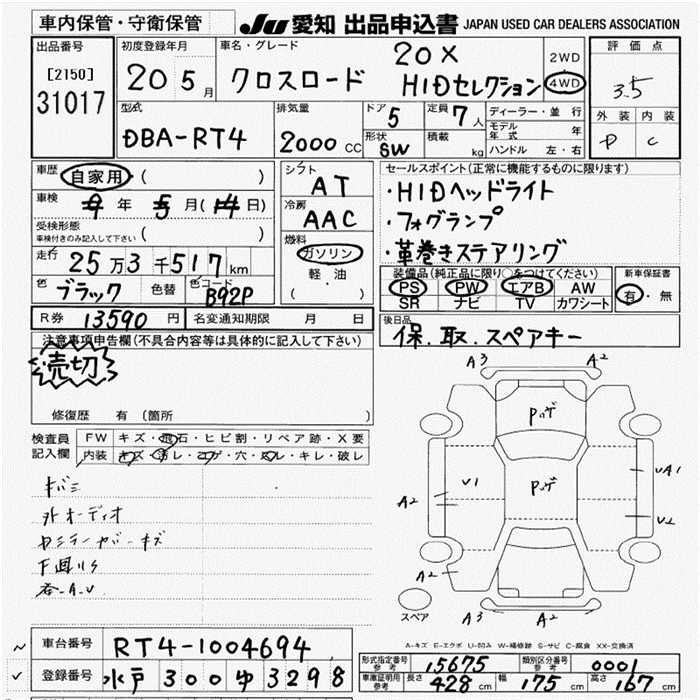 車内保管・守衛保管
JU 愛知 出品申込書 JAPAN USED CAR DEALERS ASSOCIATION
出品番号
[2150]
31017
初度登録年月
20 5月
車名・グレード
クロスロード
20X
HIDセレクション
2WD
4WD
評価点
3.5
外装 内装
D C
型式
DBA-RT4
排気量
2000 CC
ドア
5
形状
SW
定員
7人
積載
kg
ディーラー・並行
モデル年式 年
ハンドル 左・右
車歴
自家用 ( )
車検
9年 5月(14日)
受検形態
車検付きのみ記入して下さい ( )
走行
25万3千517km
色
ブラック
色替
色コード
B92P
シフト
AT
冷房
AAC
燃料
ガソリン
軽・油
( )
セールスポイント(正常に機能するものに限ります)
・HIDヘッドライト
・フォグランプ
・革巻きステアリング
装備品(純正品に限り○をつけてください)
PS PW エアB AW
SR ナビ TV カワシート
新車保証書
有・無
R券 13590円
名変通知期限 月 日
後日品
保.取.スペアキー
注意事項申告欄(不具合内容等は具体的に記入して下さい)
売切
修復歴 有 (箇所 )
検査員記入欄
FW キズ・飛石・ヒビ割・リペア跡・X要
内装 キズ・汚レ・コゲ・穴・スレ・キレ・破レ
キバミ
外オーディオ
下廻りS
A3 A2
U1
UA1
A2
U2
A2
A3 A2
スペア
A-キズ E-エクボ U-凹み W-補修跡 S-サビ C-腐食 XX-交換済
車台番号
RT4-1004694
登録番号
水戸 300 ゆ 3298
形式指定番号
参考
15675
類別区分番号
参考
0001
車庫証明用
参考
長さ 428cm 幅 175cm 高さ 167cm